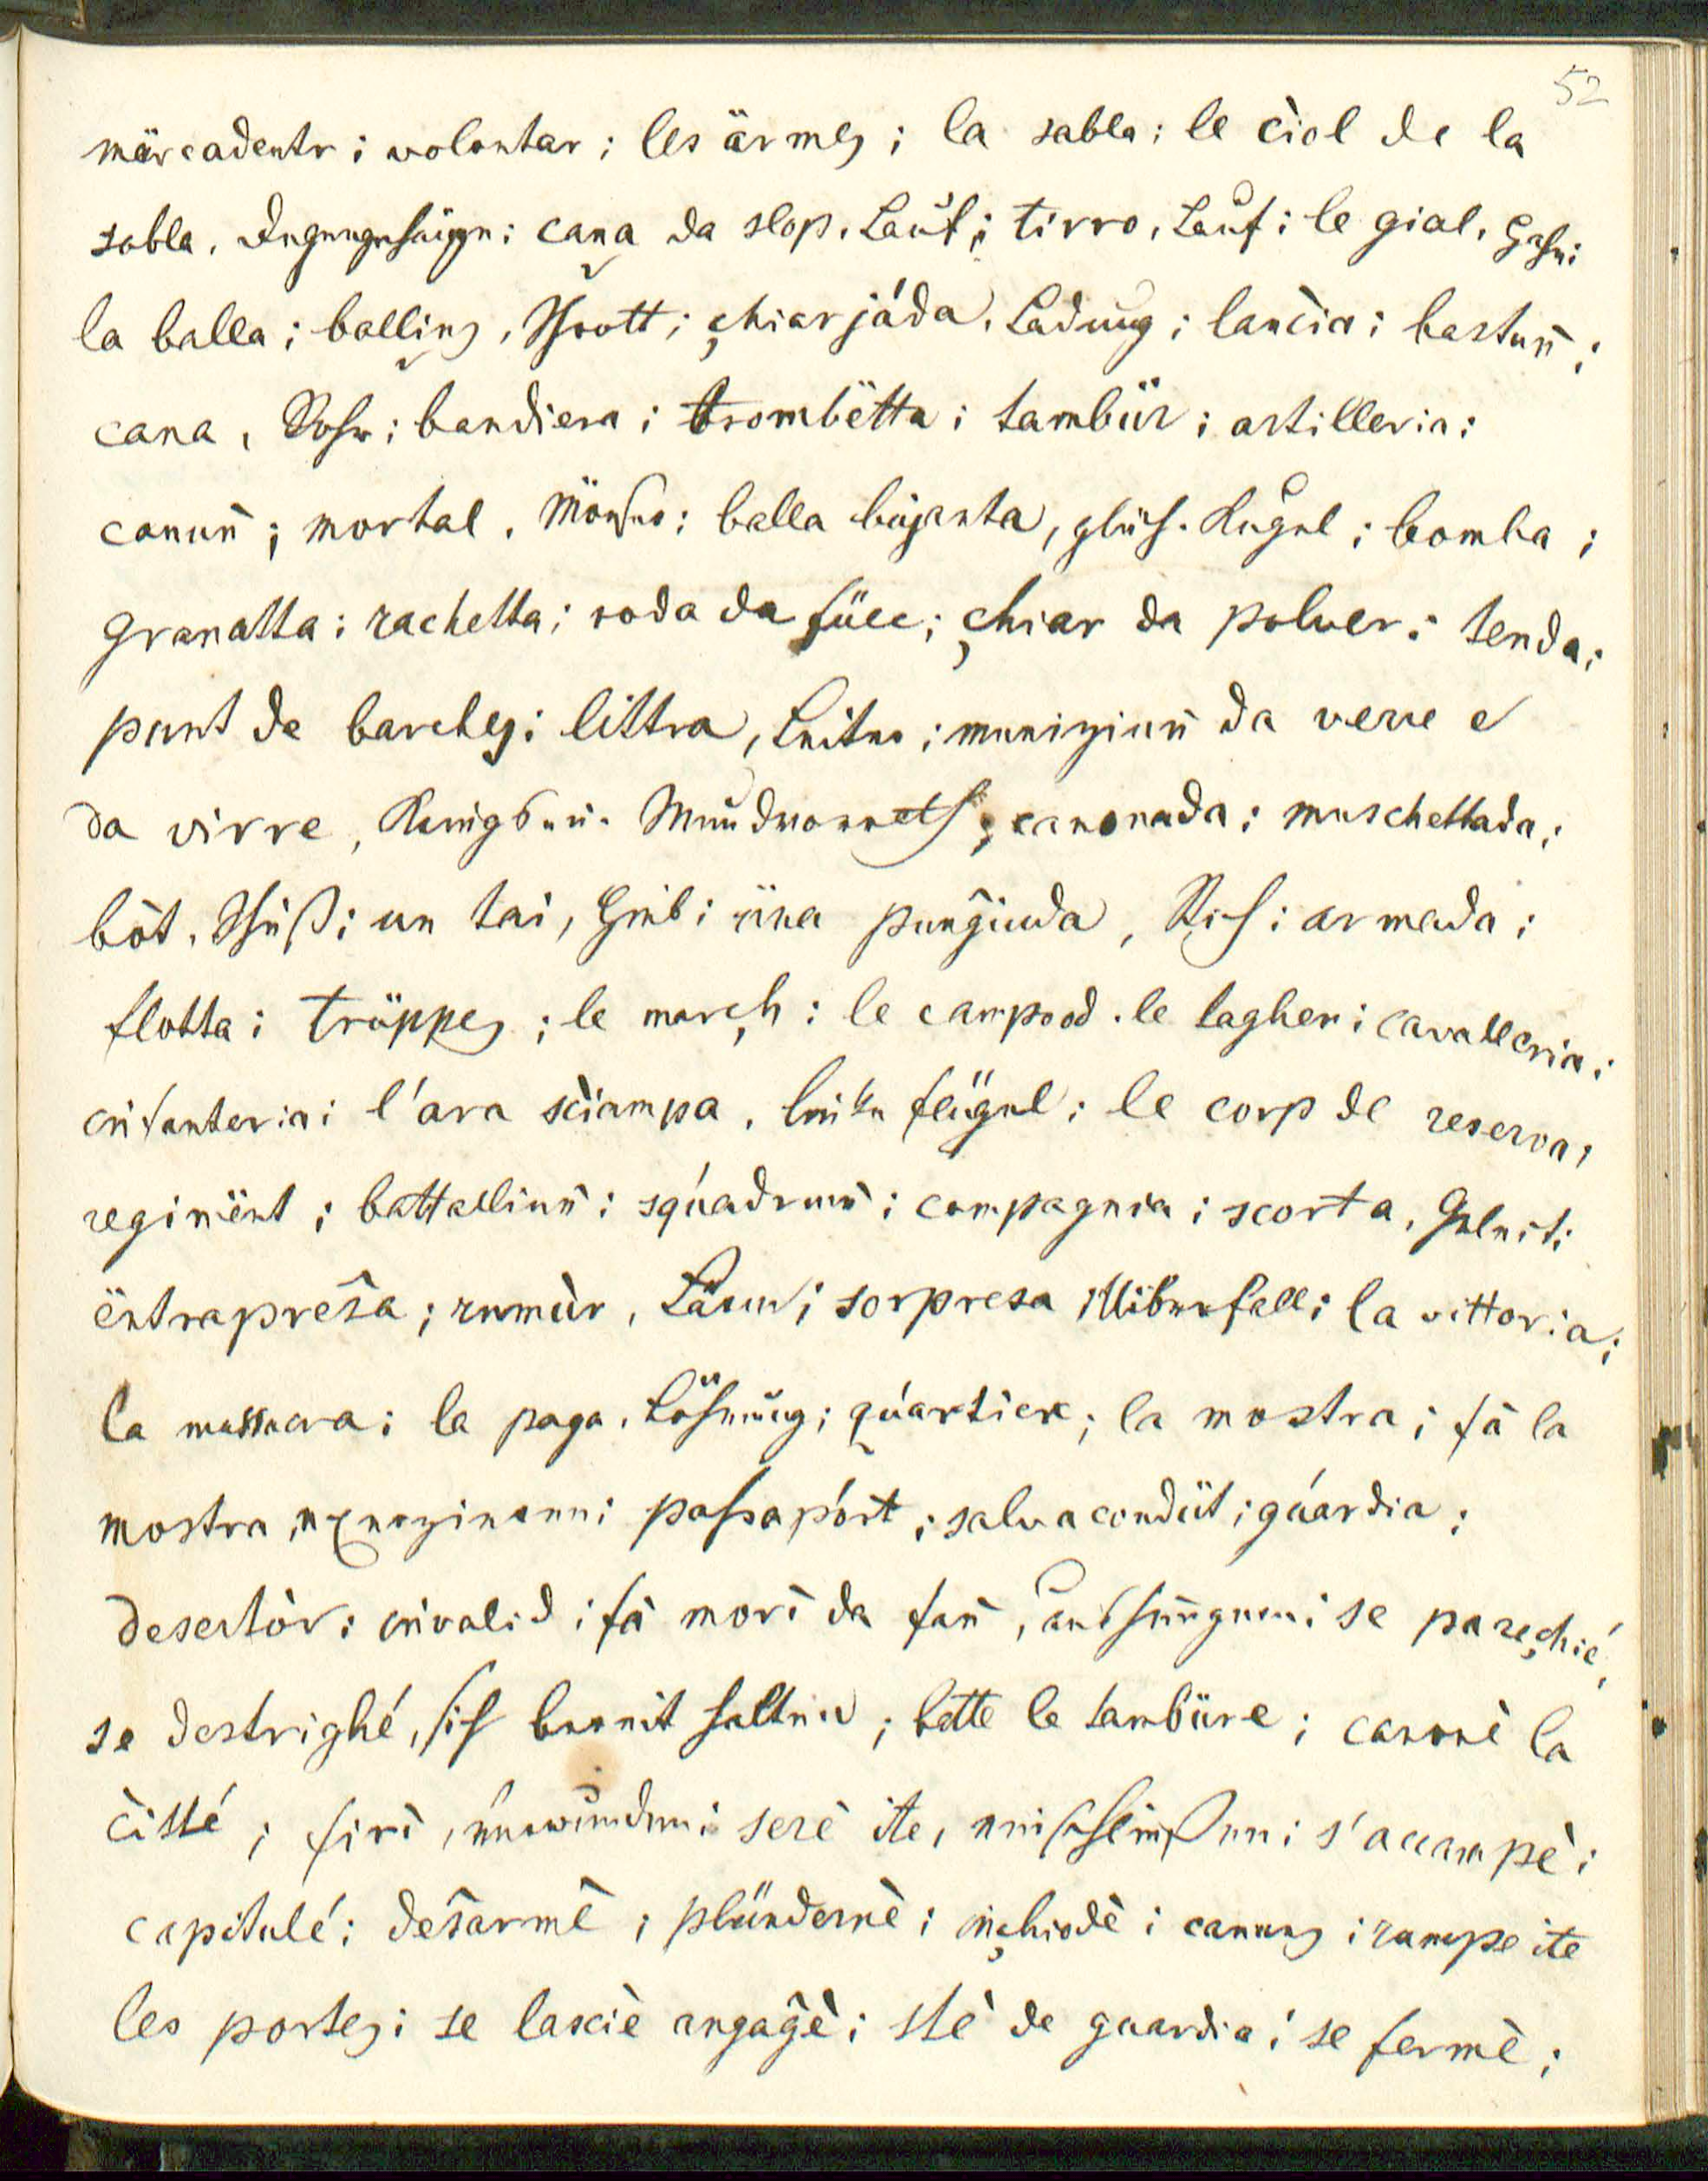 52
märcadentr; volontar; les ärmes; la sabla; le ciòl de la
sabla, Degengefäß; cana da slop, Lauf; tirro, Lauf; le gial, Hahn;
la balla; ballins, Schrott; çhiarjáda, Ladung; lancia; bastun̄;
cana, Rohr; bandiera; trombëtta; tambür; artilleria;
canun̄; mortal, Mörser; balla büjanta, glüh. Kugel; bomba;
granatta; rachetta; roda da füec; çhiar da polver; tenda;
punt de barches; littra, Leiter; muniziun̄ da verre e
da virre, Kriegs- u. Mundvorrath; canonada; muschettada;
bòt, Schuß; un tai, Hieb; üna pungiuda, Stich; armada;
flotta; trüppes; le març̧h; le campo od. le lagher; cavalleria;
infanteria; l'ara sciampa, linke flügel; le corp de reserva;
regimënt; battalliun̄; squadrun̄; compagnia; scorta, Geleit;
ëntrapresa; rumùr, Lärm; sorpresa Überfall; la vittoria;
la massacra; la paga, Löhnung; quartier; la mostra; fà la
mostra, exerziren; passapórt; salvacondüt; guardia;
desertòr; invalid; fà morì da fan̄, aushungern; se pareçhié,
se destrighé, sich bereit halten; bátte le tambüre; canonè la
citté; firì, verwunden; serè ite, einschließen; s'accampè;
capitulé; desarmè; plündernè; inçhiodè i canuns; rumpe ite
les portes; se lasciè angagè; stè de guardia; se fermè;